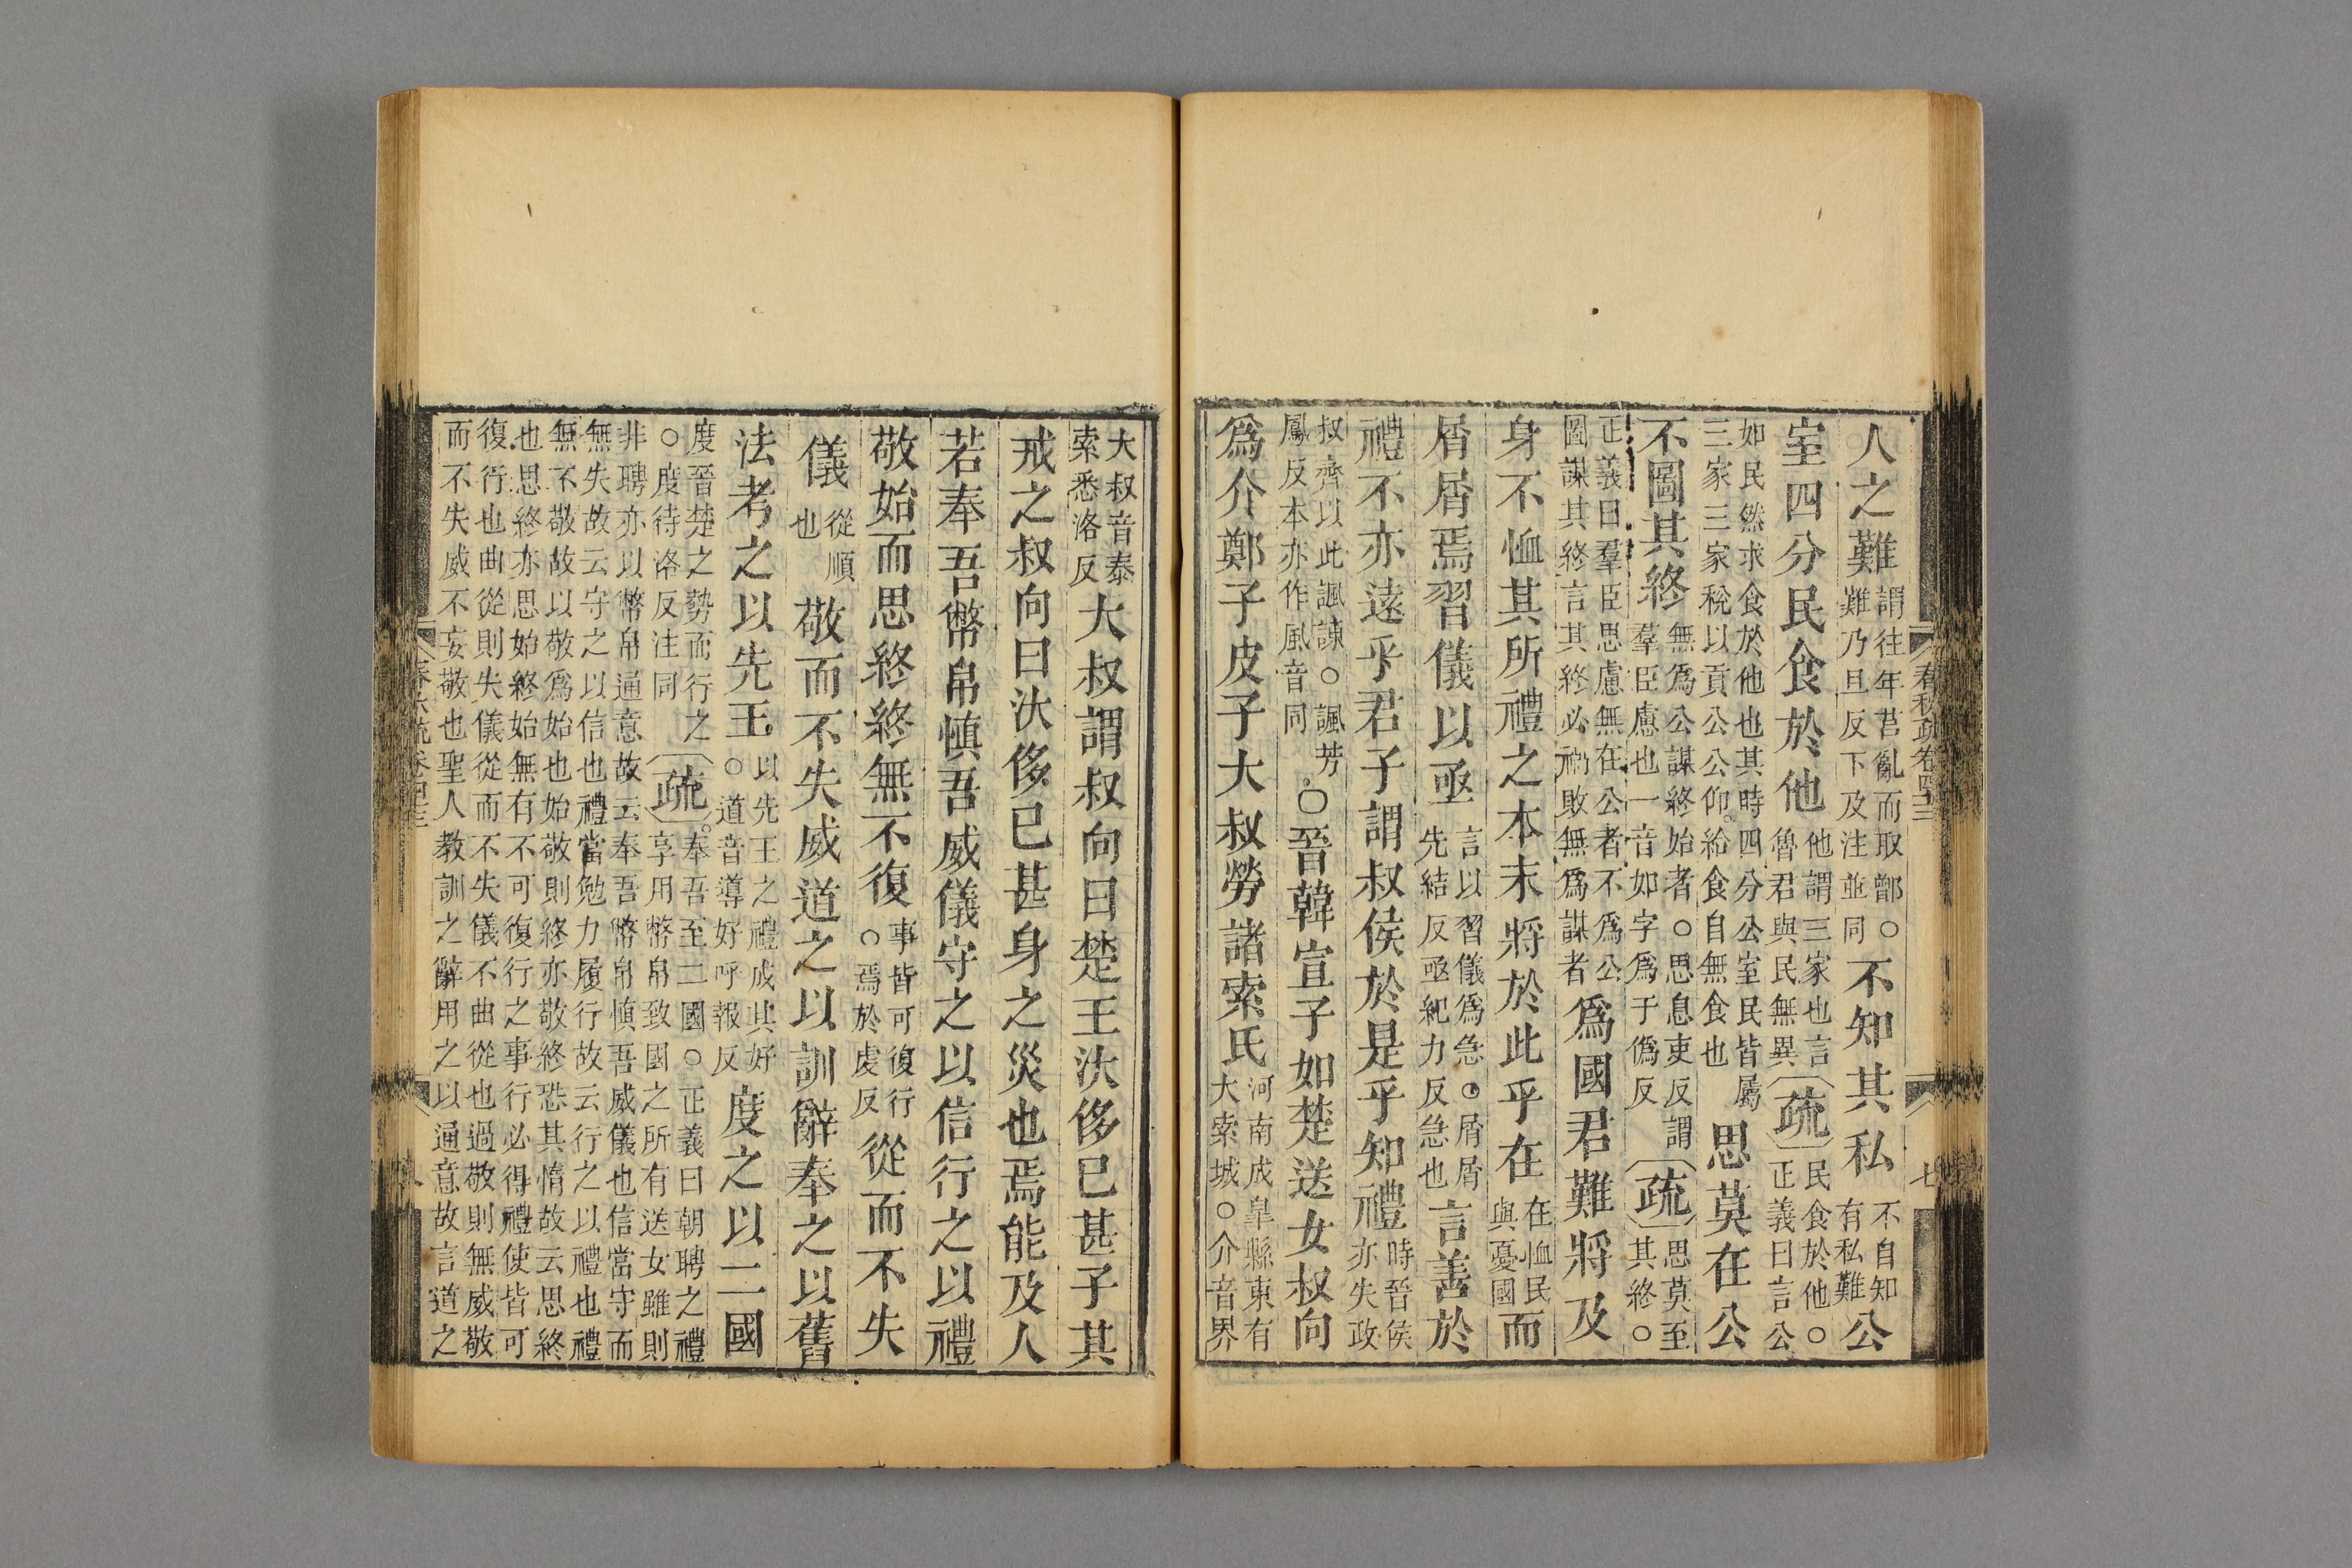 春秋疏卷四十三 七
人之難謂往年莒亂而取鄫○難乃旦反下及注並同不知其私不自知有私難公
室四分民食於他他謂三家也言魯君與民無異疏民食於他○正義曰言公
如民然求食於他也其時四分公室民皆屬三家三家稅以貢公公仰給食自無食也思莫在公
不圖其終無爲公謀終始者○思息吏反謂羣臣慮也一音如字爲于僞反疏思莫至其終○
正義曰羣臣思慮無在公者不爲公圖謀其終言其終必禍敗無爲謀者爲國君難將及
身不恤其所禮之本末將於此乎在在恤民與憂國而
屑屑焉習儀以亟言以習儀爲急○屑屑先結反亟紀力反急也言善於
禮不亦遠乎君子謂叔侯於是乎知禮時晉侯亦失政
叔齊以此諷諫○諷芳鳳反本亦作風音同○晉韓宣子如楚送女叔向
爲介鄭子皮子大叔勞諸索氏河南成皋縣東有大索城○介音界
大叔音泰索悉洛反大叔謂叔向曰楚王汏侈已甚子其
戒之叔向曰汏侈已甚身之災也焉能及人
若奉吾幣帛慎吾威儀守之以信行之以禮
敬始而思終終無不復事皆可復行○焉於虔反從而不失
儀從順也敬而不失威道之以訓辭奉之以舊
法考之以先王以先王之禮成其好○道音導好呼報反度之以二國
度晉楚之勢而行之○度待洛反注同疏奉吾至二國○正義曰朝聘之禮享用幣帛致國之所有送女雖則
非聘亦以幣帛通意故云奉吾幣帛慎吾威儀也信當守而無失故云守之以信也禮當勉力履行故云行之以禮也禮
無不敬故以敬爲始也始敬則終亦敬終恐其惰故云思終也思終亦思始終始無有不可復行之事行必得禮使皆可
復行也曲從則失儀從而不失儀不曲從也過敬則無威敬而不失威不妄敬也聖人教訓之辭用之以通意故言道之
春秋疏卷四十三 八